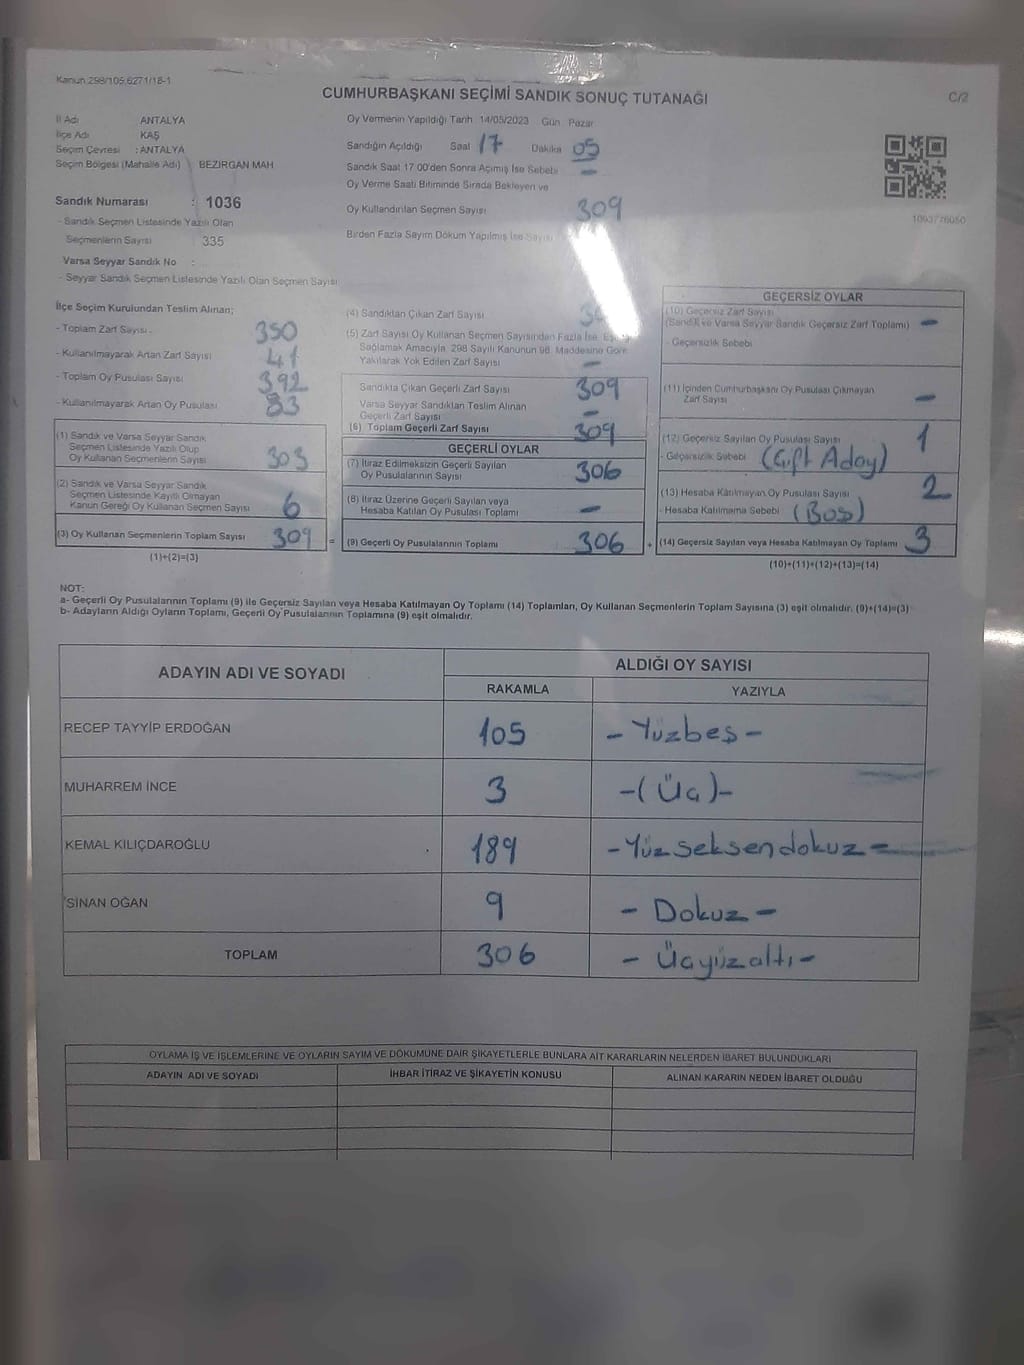 Kanun 298/105,6271/18-1
CUMHURBAŞKANI SEÇİMİ SANDIK SONUÇ TUTANAĞI
C/2
İl Adı ANTALYA
İlçe Adı KAŞ
Seçim Çevresi : ANTALYA
Seçim Bölgesi (Mahalle Adı) BEZİRGAN MAH
Sandık Numarası : 1036
- Sandık Seçmen Listesinde Yazılı Olan
Seçmenlerin Sayısı 335
Varsa Seyyar Sandık No :
- Seyyar Sandık Seçmen Listesinde Yazılı Olan Seçmen Sayısı
Oy Vermenin Yapıldığı Tarih 14/05/2023 Gün Pazar
Sandığın Açıldığı Saat 17 Dakika 05
Sandık Saat 17:00'den Sonra Açılmış İse Sebebi -
Oy Verme Saati Bitiminde Sırada Bekleyen ve
Oy Kullandırılan Seçmen Sayısı 309
Birden Fazla Sayım Döküm Yapılmış İse Sayısı
İlçe Seçim Kurulundan Teslim Alınan;
- Toplam Zarf Sayısı 350
- Kullanılmayarak Artan Zarf Sayısı 41
- Toplam Oy Pusulası Sayısı 392
- Kullanılmayarak Artan Oy Pusulası 83
(1) Sandık ve Varsa Seyyar Sandık
Seçmen Listesinde Yazılı Olup
Oy Kullanan Seçmenlerin Sayısı 303
(2) Sandık ve Varsa Seyyar Sandık
Seçmen Listesinde Kayıtlı Olmayan
Kanun Gereği Oy Kullanan Seçmen Sayısı 6
(3) Oy Kullanan Seçmenlerin Toplam Sayısı 309 =
(1)+(2)=(3)
(4) Sandıktan Çıkan Zarf Sayısı
(5) Zarf Sayısı Oy Kullanan Seçmen Sayısından Fazla İse,
Sağlamak Amacıyla, 298 Sayılı Kanunun 98. Maddesine Göre
Yakılarak Yok Edilen Zarf Sayısı -
Sandıkta Çıkan Geçerli Zarf Sayısı 309
Varsa Seyyar Sandıktan Teslim Alınan
Geçerli Zarf Sayısı -
(6) Toplam Geçerli Zarf Sayısı 309
GEÇERLİ OYLAR
(7) İtiraz Edilmeksizin Geçerli Sayılan
Oy Pusulalarının Sayısı 306
(8) İtiraz Üzerine Geçerli Sayılan veya
Hesaba Katılan Oy Pusulası Toplamı -
(9) Geçerli Oy Pusulalarının Toplamı 306 +
GEÇERSİZ OYLAR
(10) Geçersiz Zarf Sayısı
(Sandık ve Varsa Seyyar Sandık Geçersiz Zarf Toplamı) -
- Geçersizlik Sebebi
(11) İçinden Cumhurbaşkanı Oy Pusulası Çıkmayan
Zarf Sayısı -
(12) Geçersiz Sayılan Oy Pusulası Sayısı 1
- Geçersizlik Sebebi (Çift Aday)
(13) Hesaba Katılmayan Oy Pusulası Sayısı 2
- Hesaba Katılmama Sebebi (Boş)
(14) Geçersiz Sayılan veya Hesaba Katılmayan Oy Toplamı 3
(10)+(11)+(12)+(13)=(14)
NOT:
a- Geçerli Oy Pusulalarının Toplamı (9) ile Geçersiz Sayılan veya Hesaba Katılmayan Oy Toplamı (14) Toplamları, Oy Kullanan Seçmenlerin Toplam Sayısına (3) eşit olmalıdır. (9)+(14)=(3)
b- Adayların Aldığı Oyların Toplamı, Geçerli Oy Pusulalarının Toplamına (9) eşit olmalıdır.
ADAYIN ADI VE SOYADI ALDIĞI OY SAYISI
RAKAMLA YAZIYLA
RECEP TAYYİP ERDOĞAN 105 - Yüzbeş -
MUHARREM İNCE 3 -( Üç )-
KEMAL KILIÇDAROĞLU 189 - Yüzseksendokuz -
SİNAN OĞAN 9 - Dokuz -
TOPLAM 306 - Üçyüzaltı -
OYLAMA İŞ VE İŞLEMLERİNE VE OYLARIN SAYIM VE DÖKÜMÜNE DAİR ŞİKAYETLERLE BUNLARA AİT KARARLARIN NELERDEN İBARET BULUNDUKLARI
ADAYIN ADI VE SOYADI İHBAR İTİRAZ VE ŞİKAYETİN KONUSU ALINAN KARARIN NEDEN İBARET OLDUĞU